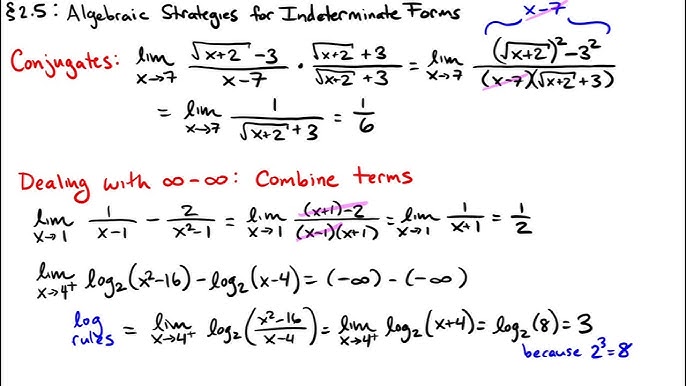 §2.5: Algebraic Strategies for Indeterminate Forms
x-7
Conjugates: lim x→7 (√(x+2) - 3)/(x-7) · (√(x+2) + 3)/(√(x+2) + 3) = lim x→7 ((√(x+2))² - 3²)/((x-7)(√(x+2) + 3))
= lim x→7 1/(√(x+2) + 3) = 1/6
Dealing with ∞-∞: Combine terms
lim x→1 1/(x-1) - 2/(x²-1) = lim x→1 ((x+1)-2)/((x-1)(x+1)) = lim x→1 1/(x+1) = 1/2
lim x→4⁺ log₂(x²-16) - log₂(x-4) = (-∞) - (-∞)
log rules = lim x→4⁺ log₂((x²-16)/(x-4)) = lim x→4⁺ log₂(x+4) = log₂(8) = 3
because 2³=8